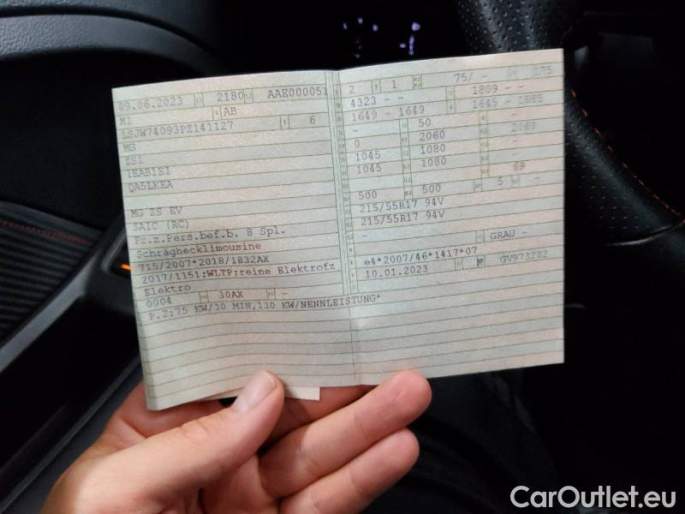 09.06.2023 2180 AAE000051
M1 AB
LSJW74093PZ141127 6
MG
ZS1
QA5LKEA
MG ZS EV
SAIC (RC)
Fz.z.Pers.bef.b. 8 Spl.
Schräghecklimousine
715/2007*2018/1832AX
2017/1151;WLTP;reine Elektrofz
Elektro
0004 30AX
P.2:75 KW/30 MIN,130 KW/NENNLEISTUNG*
2 1 75/ -
4323 - - 1809 - -
1649 - 1649 1645 -
- 50 -
0 2060
1045 1080 -
1045 1080 -
- 69
500 500 5 -
215/55R17 94V
215/55R17 94V
-
- GRAU -
e4*2007/46*1417*07
10.01.2023
CarOutlet.eu